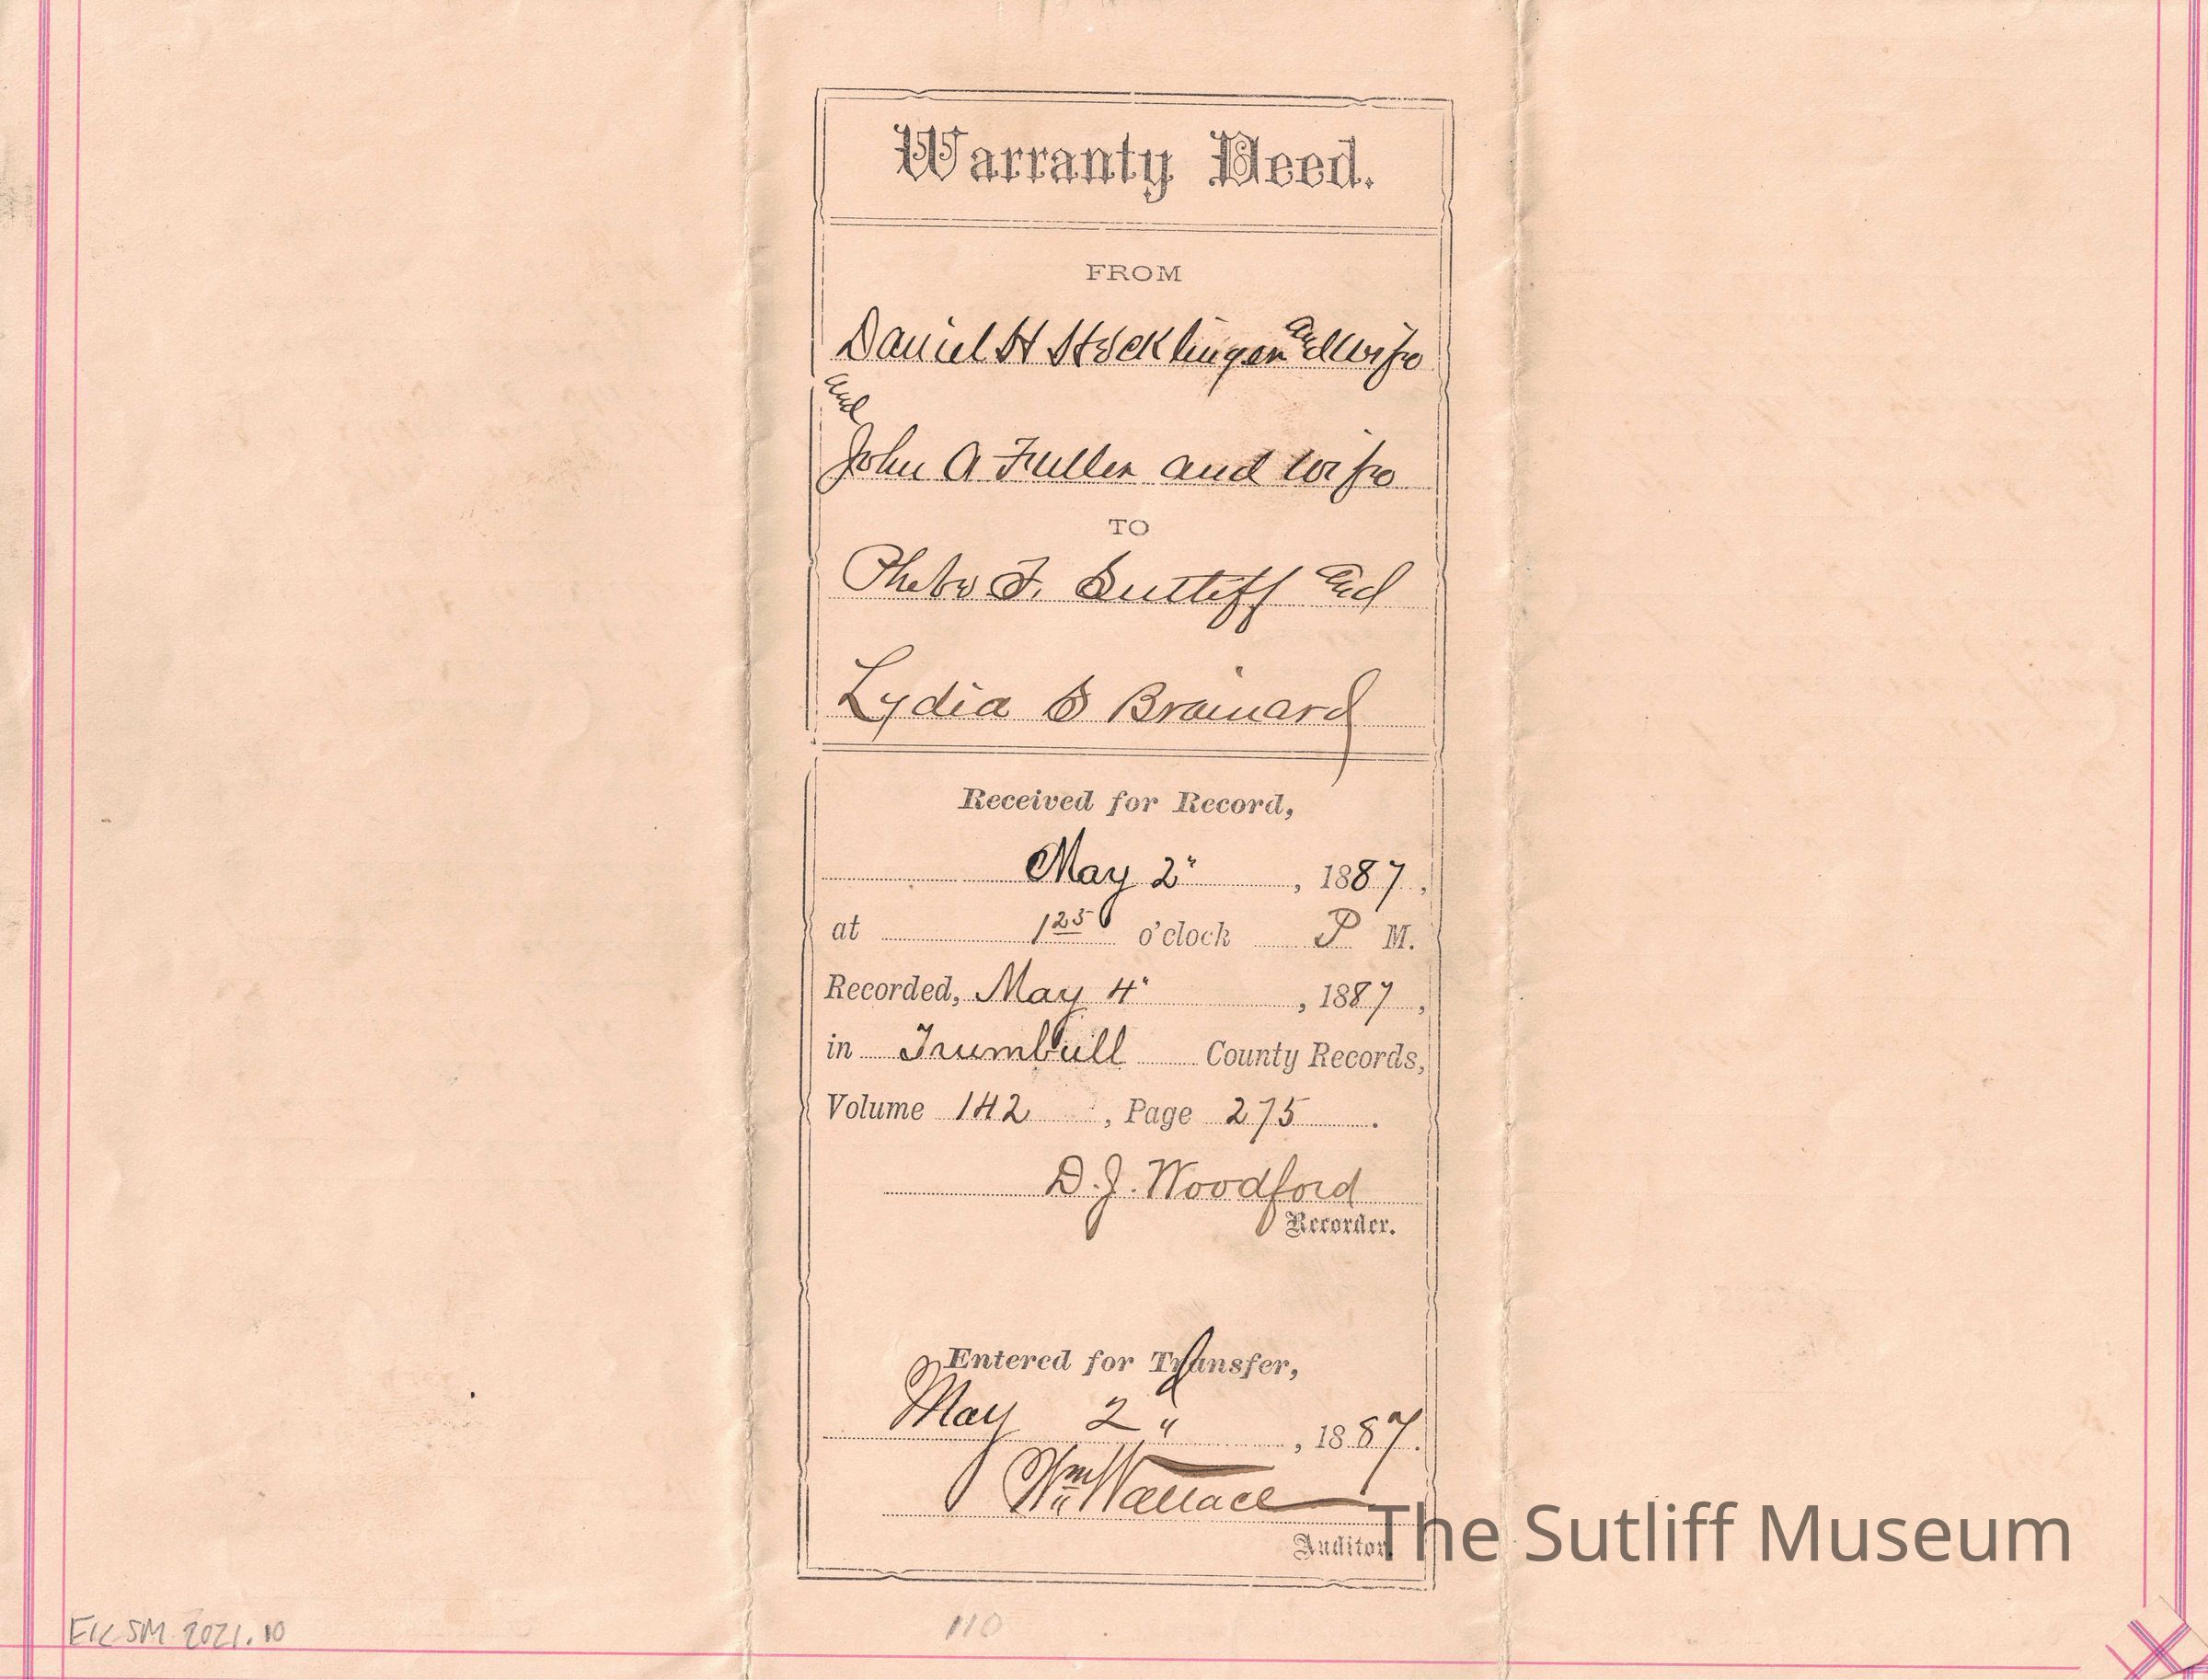 Warranty Deed.
FROM
Daniel H Stocklinger and wife
and
John A Fuller and wife
TO
Phebe F. Sutliff and
Lydia S Brainard
Received for Record,
May 2", 1887,
at 1 25 o'clock P M.
Recorded, May 4", 1887,
in Trumbull County Records,
Volume 142, Page 275.
D. J. Woodford
Recorder.
Entered for Transfer,
May 2d", 1887.
Wm Wallace
Auditor.
The Sutliff Museum
SM 2021.10
110